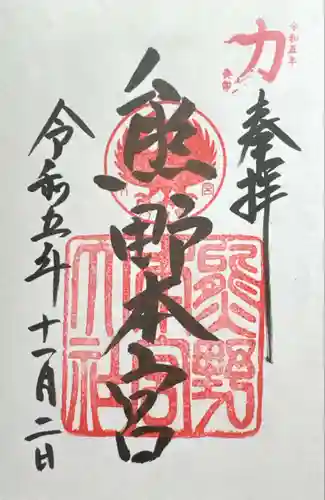 力
令和五年
奉拝
熊野本宮
熊野
本宮
大社
令和五年十一月二日